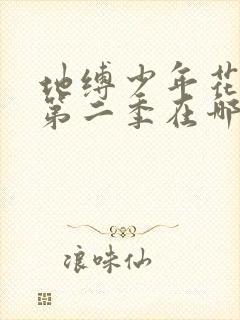 地缚少年花
第二季在哪
浪味仙